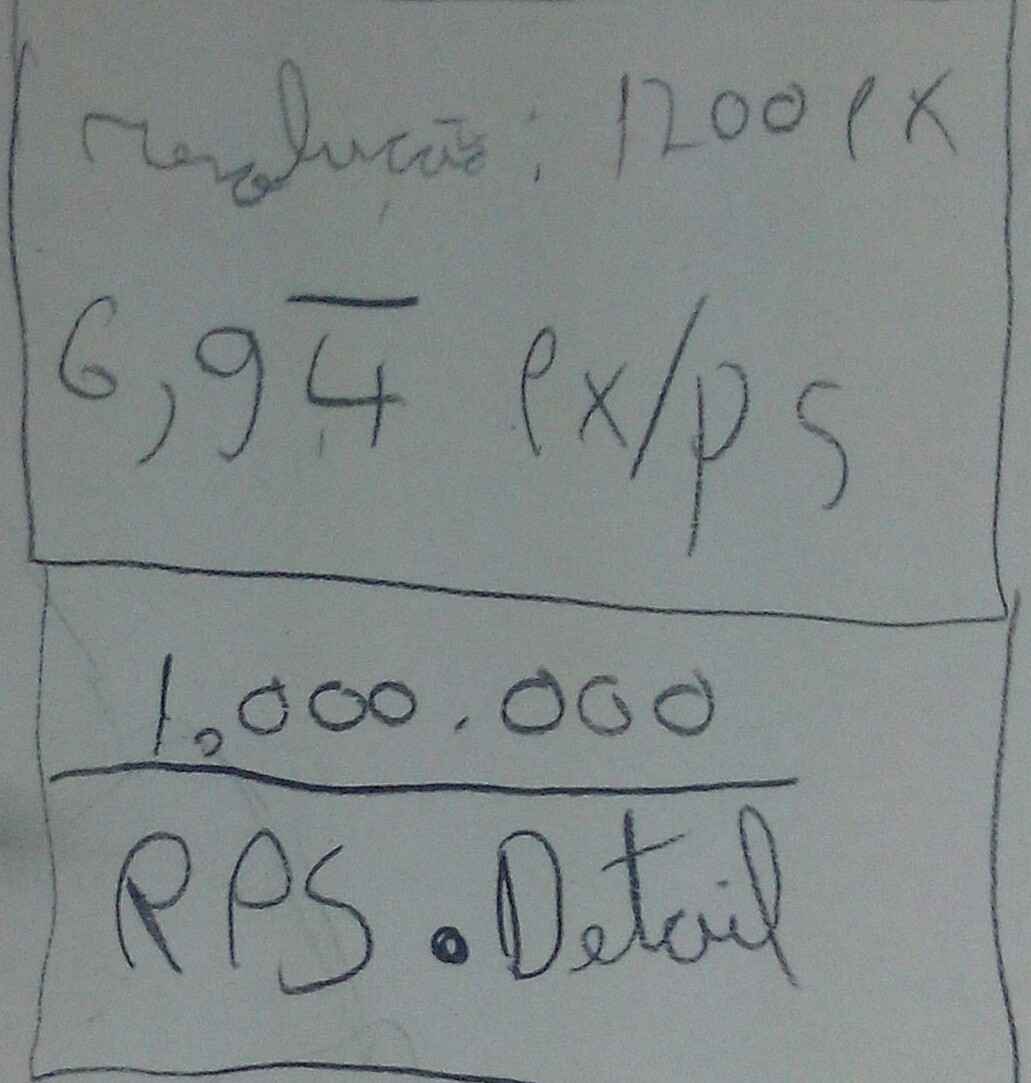 resolução: 1200 px
6,94̅ px/ps
1.000.000
RPS . Detail